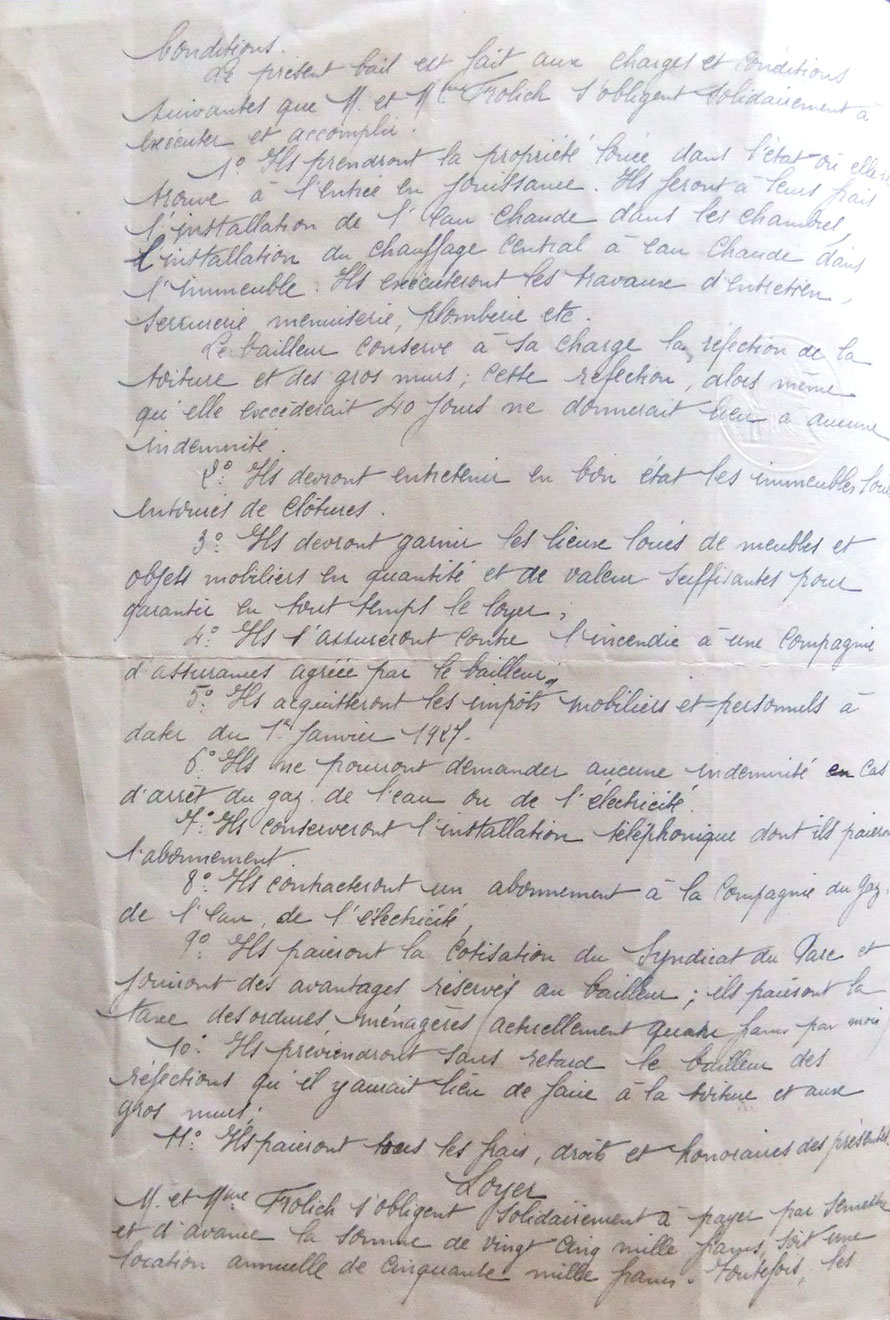 Conditions.
Le présent bail est fait aux charges et conditions
suivantes que M. et Mme Frolich s'obligent solidairement à
exécuter et accomplir.
1° Ils prendront la propriété louée dans l'état où elle se
trouve à l'entrée en jouissance. Ils feront à leurs frais
l'installation de l'eau chaude dans les chambres,
l'installation du chauffage central à eau chaude dans
l'immeuble. Ils exécuteront les travaux d'entretien,
serrurerie menuiserie, plomberie etc.
Le bailleur conserve à sa charge la réfection de la
toiture et des gros murs; cette réfection, alors même
qu'elle excéderait 40 jours ne donnerait lieu à aucune
indemnité.
2° Ils devront entretenir en bon état les immeubles loués
entourés de clôtures.
3° Ils devront garnir les lieux loués de meubles et
objets mobiliers en quantité et de valeur suffisantes pour
garantir en tout temps le loyer;
4° Ils s'assureront contre l'incendie à une Compagnie
d'assurances agréée par le bailleur,
5° Ils acquitteront les impôts mobiliers et personnels à
dater du 1er Janvier 1927.
6° Ils ne pourront demander aucune indemnité en cas
d'arrêt du gaz. de l'eau ou de l'électricité.
7° Ils conserveront l'installation téléphonique dont ils paieront
l'abonnement.
8° Ils contracteront un abonnement à la Compagnie du gaz.
de l'eau, de l'électricité,
9° Ils paieront la cotisation du Syndicat du Parc et
jouiront des avantages réservés au bailleur; ils paieront la
taxe des ordures ménagères (actuellement quatre francs par mois)
10° Ils préviendront sans retard le bailleur des
réfections qu'il y aurait lieu de faire à la toiture et aux
gros murs;
11° Ils paieront tous les frais, droits et honoraires des présentes.
Loyer
M. et Mme Frolich s'obligent solidairement à payer par semestre
et d'avance la somme de vingt cinq mille francs, soit une
location annuelle de cinquante mille francs. Toutefois, les